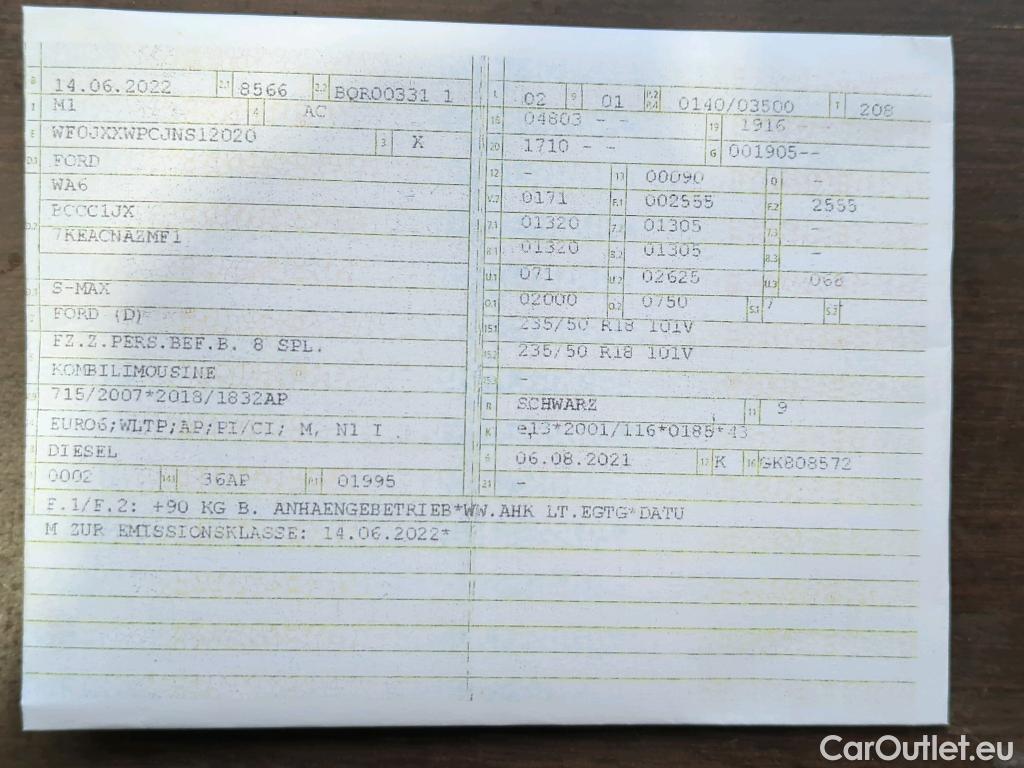 B 14.06.2022 2.1 8566 2.2 BQR00331 1
J M1 4 AC
E WF0JXXWPCJNS12020 3 X
D.1 FORD
WA6
D.2 BCCC1JX
7KEACNAZMF1
D.3 S-MAX
2 FORD (D)
5 FZ.Z.PERS.BEF.B. 8 SPL.
KOMBILIMOUSINE
V.9 715/2007*2018/1832AP
14 EURO6;WLTP;AP;PI/CI; M, N1 I
P.3 DIESEL
10 0002 14.1 36AP P.1 01995
L 02 9 01 P.2 P.4 0140/03500 T 208
18 04803 - - 19 1916 - -
20 1710 - - G 001905--
12 - 13 00090 Q -
V.7 0171 F.1 002555 F.2 2555
7.1 01320 7.2 01305 7.3 -
8.1 01320 8.2 01305 8.3 -
U.1 071 U.2 02625 U.3 066
O.1 02000 O.2 0750 S.1 7 S.2
15.1 235/50 R18 101V
15.2 235/50 R18 101V
15.3 -
R SCHWARZ 11 9
K e13*2001/116*0185*43
6 06.08.2021 17 K 16 GK808572
21 -
F.1/F.2: +90 KG B. ANHAENGEBETRIEB*WW.AHK LT.EGTG*DATU
M ZUR EMISSIONSKLASSE: 14.06.2022*
CarOutlet.eu